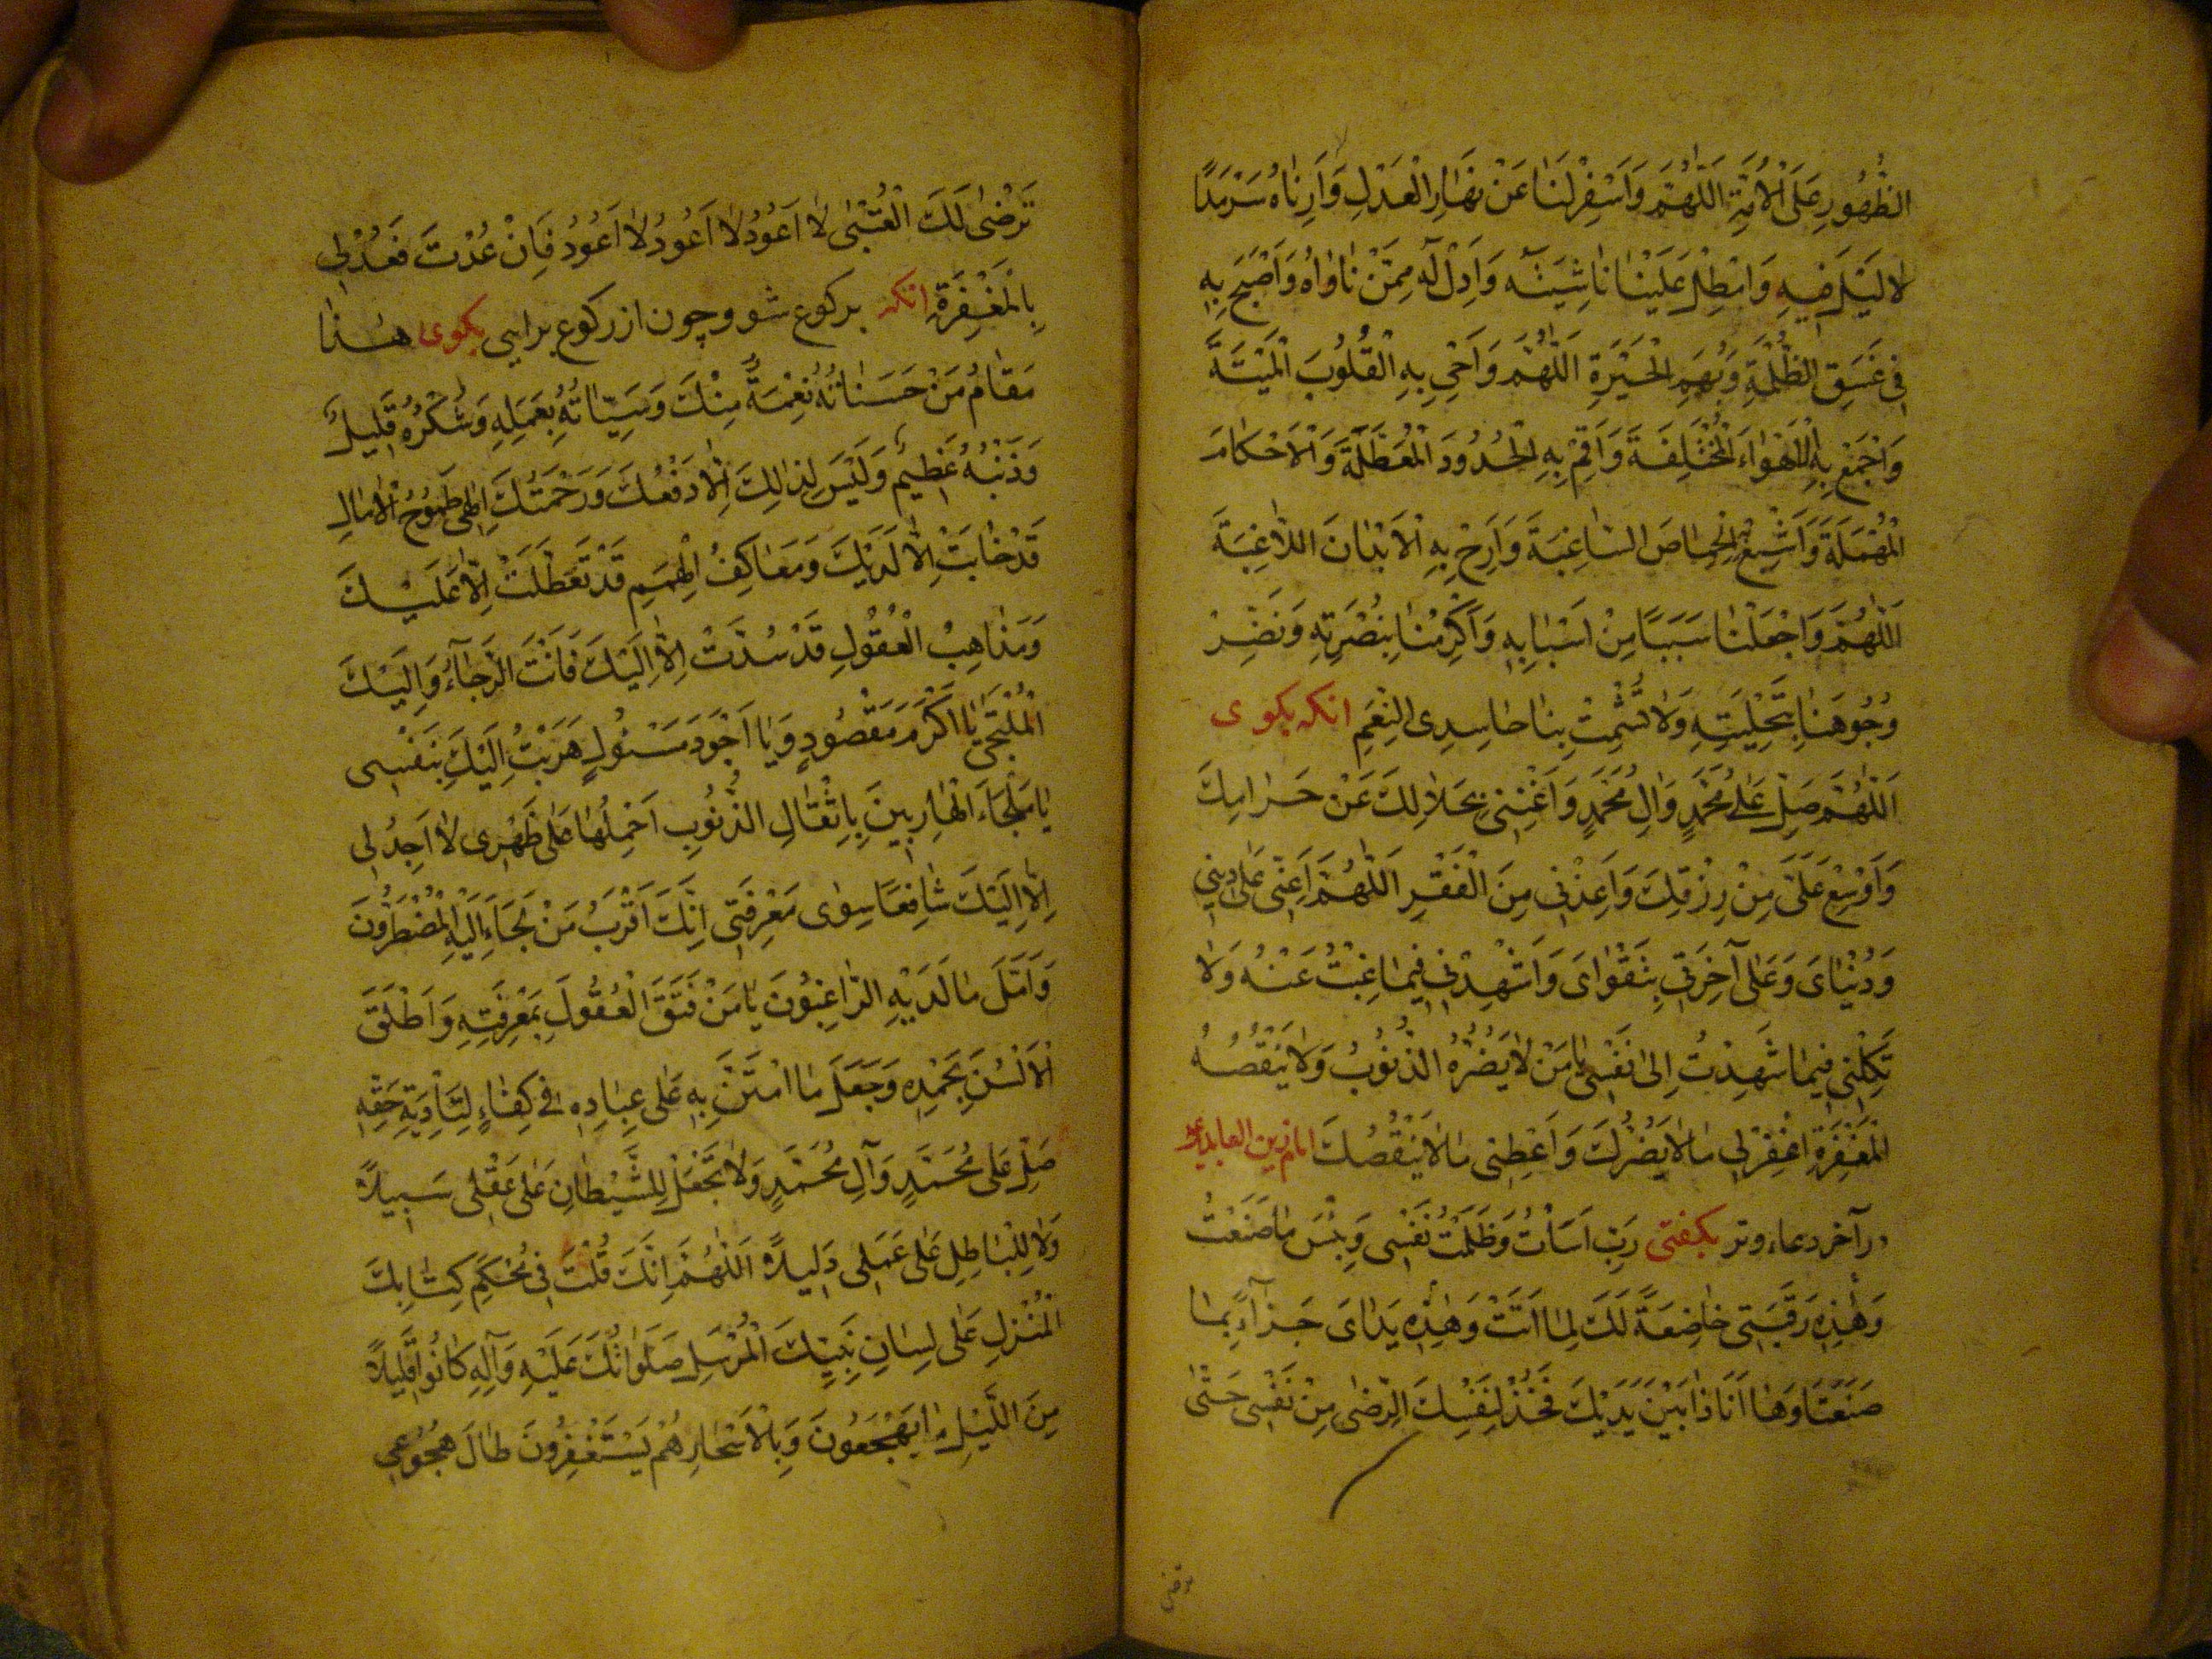 الظُّهُورِ عَلَى الْاُمَّةِ اَللّٰهُمَّ وَاَسْفِرْ لَنَا عَنْ نَهَارِ الْعَدْلِ وَاَرِنَاهُ سَرْمَدًا
لَا لَيْلَ فِيهِ وَامْطِلْ عَلَيْنَا نَاشِيَتَهُ وَاَدِلْ لَهُ مِمَّنْ نَاوَاهُ وَاَصْبِحْ بِهِ
فِي غَسَقِ الظُّلْمَةِ وَبُهَمِ الْحَيْرَةِ اَللّٰهُمَّ وَاَحْيِ بِهِ الْقُلُوبَ الْمَيْتَةَ
وَاجْمَعْ بِهِ الْاَهْوَاءَ الْمُخْتَلِفَةَ وَاَقِمْ بِهِ الْحُدُودَ الْمُعَطَّلَةَ وَالْاَحْكَامَ
الْمُهْمَلَةَ وَاَشْبِعْ بِهِ الْخِمَاصَ السَّاغِبَةَ وَاَرِحْ بِهِ الْاَبْدَانَ اللَّاغِبَةَ
اَللّٰهُمَّ وَاجْعَلْنَا سَبَبًا مِنْ اَسْبَابِهِ وَاَكْرِمْنَا بِنُصْرَتِهِ وَنَضِّرْ
وُجُوهَنَا بِتَحْلِيَتِهِ وَلَا تُشْمِتْ بِنَا حَاسِدِي النِّعَمِ انكه بكوى
اَللّٰهُمَّ صَلِّ عَلٰى مُحَمَّدٍ وَاٰلِ مُحَمَّدٍ وَاَغْنِنِي بِحَلَالِكَ عَنْ حَرَامِكَ
وَاَوْسِعْ عَلَيَّ مِنْ رِزْقِكَ وَاَعِذْنِي مِنَ الْفَقْرِ اَللّٰهُمَّ اَعِنِّي عَلٰى دِينِي
وَدُنْيَايَ وَعَلٰى آخِرَتِي بِتَقْوَايَ وَاشْهِدْنِي فِيمَا غِبْتُ عَنْهُ وَلَا
تَكِلْنِي فِيمَا شَهِدْتُ اِلٰى نَفْسِي يَا مَنْ لَا يَضُرُّهُ الذُّنُوبُ وَلَا يَنْقُصُهُ
الْمَغْفِرَةِ اغْفِرْ لِي مَا لَا يَضُرُّكَ وَاَعْطِنِي مَا لَا يَنْقُصُكَ امام زين العابدين ع
در آخر دعاء وتر بكفتى رَبِّ اَسَأْتُ وَظَلَمْتُ نَفْسِي وَبِئْسَ مَا صَنَعْتُ
وَهٰذِهِ رَقَبَتِي خَاضِعَةً لَكَ لِمَا اَتَتْ وَهٰذِهِ يَدَايَ جَزَآءً بِمَا
صَنَعَتَا وَهَا اَنَا ذَا بَيْنَ يَدَيْكَ فَخُذْ لِنَفْسِكَ الرِّضٰى مِنْ نَفْسِي حَتّٰى
ترضى
تَرْضٰى لَكَ الْعُتْبٰى لَا اَعُودُ لَا اَعُودُ لَا اَعُودُ فَاِنْ عُدْتَ فَعُدْ لِي
بِالْمَغْفِرَةِ انكه بركوع شو وچون از ركوع برايى بكوى هٰذَا
مَقَامُ مَنْ حَسَنَاتُهُ نِعْمَةٌ مِنْكَ وَسَيِّئَاتُهُ بِعَمَلِهِ وَشُكْرُهُ قَلِيلٌ
وَذَنْبُهُ عَظِيمٌ وَلَيْسَ لِذٰلِكَ اِلَّا دَفْعُكَ وَرَحْمَتُكَ اِلٰهِي طَمُوحُ الْاٰمَالِ
قَدْ خَابَتْ اِلَّا لَدَيْكَ وَمَعَاكِفُ الْهِمَمِ قَدْ تَعَطَّلَتْ اِلَّا عَلَيْكَ
وَمَذَاهِبُ الْعُقُولِ قَدْ سُدَّتْ اِلَّا اِلَيْكَ فَاَنْتَ الرَّجَآءُ وَاِلَيْكَ
الْمُلْتَجٰى يَا اَكْرَمَ مَقْصُودٍ وَيَا اَجْوَدَ مَسْئُولٍ هَرَبْتُ اِلَيْكَ بِنَفْسِي
يَا مَلْجَاَ الْهَارِبِينَ بِاَثْقَالِ الذُّنُوبِ اَحْمِلُهَا عَلٰى ظَهْرِي لَا اَجِدُ لِي
اِلَّا اِلَيْكَ شَافِعًا سِوٰى مَعْرِفَتِي اِنَّكَ اَقْرَبُ مَنْ لَجَاَ اِلَيْهِ الْمُضْطَرُّونَ
وَاَمَّلَ مَا لَدَيْهِ الرَّاغِبُونَ يَا مَنْ فَتَقَ الْعُقُولَ بِمَعْرِفَتِهِ وَاَطْلَقَ
الْاَلْسُنَ بِحَمْدِهِ وَجَعَلَ مَا امْتَنَّ بِهِ عَلٰى عِبَادِهِ فِي كِفَاءٍ لِتَأْدِيَةِ حَقِّهِ
صَلِّ عَلٰى مُحَمَّدٍ وَآلِ مُحَمَّدٍ وَلَا تَجْعَلْ لِلشَّيْطَانِ عَلٰى عَقْلِي سَبِيلًا
وَلَا لِلْبَاطِلِ عَلٰى عَمَلِي دَلِيلًا اَللّٰهُمَّ اِنَّكَ قُلْتَ فِي مُحْكَمِ كِتَابِكَ
الْمُنْزَلِ عَلٰى لِسَانِ نَبِيِّكَ الْمُرْسَلِ صَلَوَاتُكَ عَلَيْهِ وَآلِهِ كَانُوا قَلِيلًا
مِنَ اللَّيْلِ مَا يَهْجَعُونَ وَبِالْاَسْحَارِ هُمْ يَسْتَغْفِرُونَ طَالَ هُجُوعِي